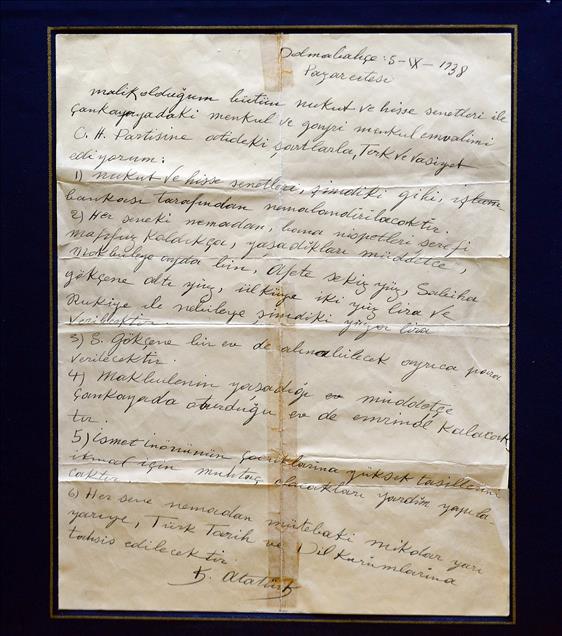 Dolmabahçe: 5-IX-1938
Pazarertesi
malik olduğum bütün nukut ve hisse senetleri ile
Çankayadaki menkul ve gayri menkul emvalimi
C. H. Partisine atideki şartlarla, Terk ve Vasiyet
ediyorum:
1) nukut ve hisse senetleri, şimdiki gibi, iş
bankası tarafından nemalandırılacaktır.
2) Her seneki nemadan, bana nispetleri şerefi
mahfuz kaldıkça, yaşadıkları müddetçe,
Makbuleye ayda bin, Afete sekiz yüz, Sabiha
gökçene altı yüz, ülküye iki yüz lira ve
Rukiye ile nebileye şimdiki yüzer lira
verilecektir.
3) S. Gökçene bir ev de alınabilecek ayrıca para
verilecektir.
4) Makbulenin yaşadığı müddetçe
Çankayada oturduğu ev de emrinde kalacak
tır.
5) ismet inönünün çocuklarına yüksek tasillerini
ikmal için muhtaç olacakları yardım yapıla
caktır.
6) Her sene nemadan mütebaki mikdar yarı
yarıye, Türk Tarih ve Dil Kurumlarına
tahsis edilecektir.
K. Atatürk